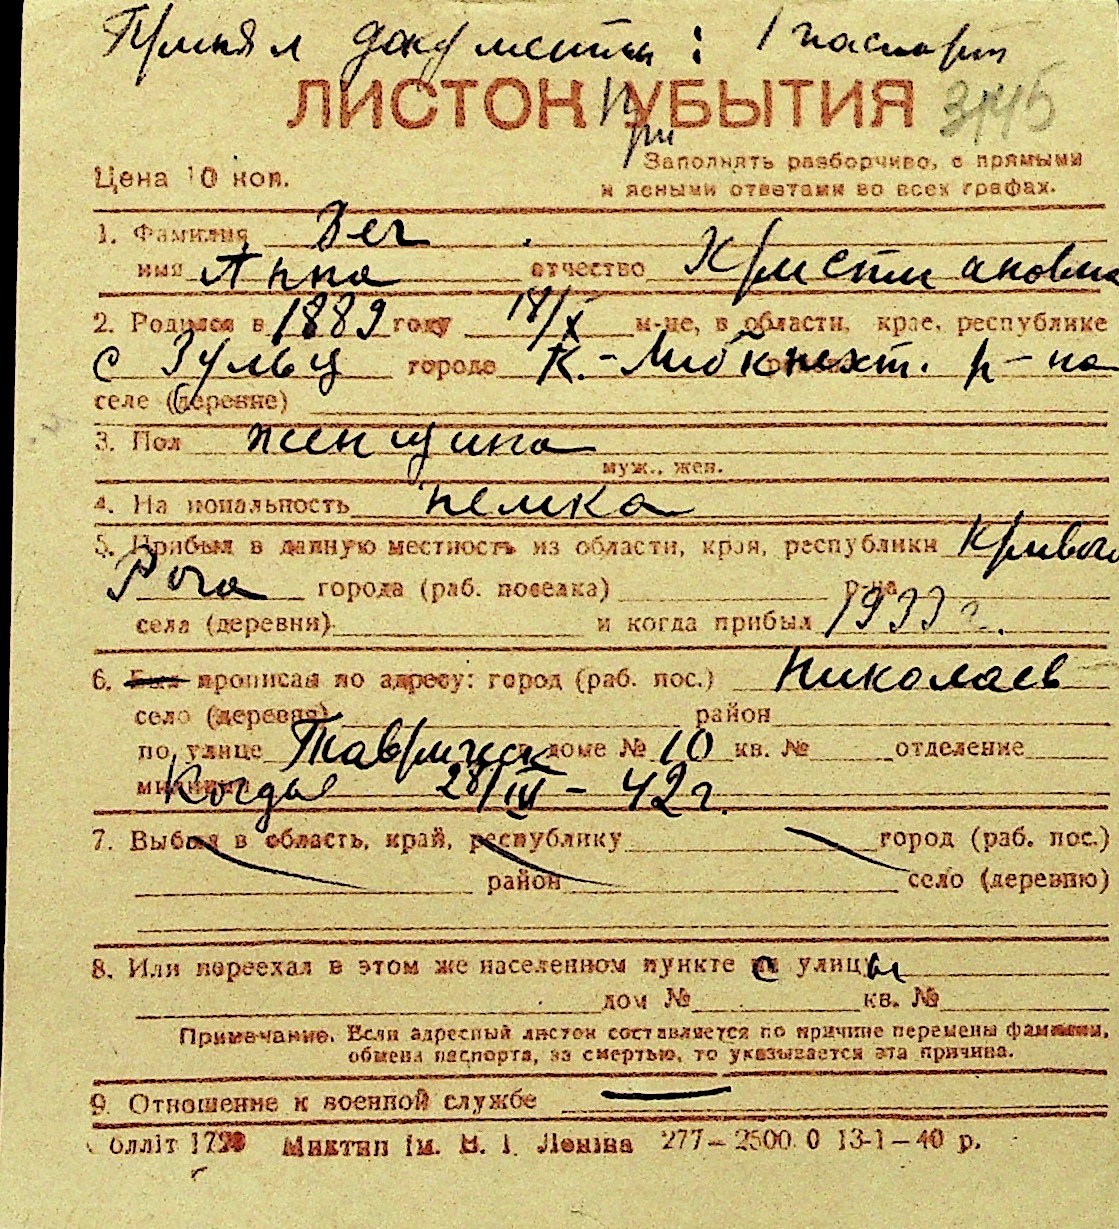 Принял документы: 1 паспорт
ЛИСТОК при УБЫТИЯ 3145
Цена 10 коп.
Заполнять разборчиво, с прямыми
и ясными ответами во всех графах.
1. Фамилия Вег
имя Анна отчество Христиановна
2. Родился в 1889 году 18/X м-це, в области, крае, республике
с Зульц городе К.-Либкнехт. р-на
селе (деревне)
3. Пол женщина
муж., жен.
4. Национальность немка
5. Прибыл в данную местность из области, края, республики Кривого
Рога города (раб. поселка) р-на
села (деревни) и когда прибыл 1933 г.
6. Был прописан по адресу: город (раб. пос.) Николаев
село (деревня) район
по улице Тавричск в доме № 10 кв. № отделение
милиции Когда 28/III - 42 г.
7. Выбыл в область, край, республику город (раб. пос.)
район село (деревню)
8. Или переехал в этом же населенном пункте с улицы
дом № кв. №
Примечание. Если адресный листок составляется по причине перемены фамилии,
обмена паспорта, за смертью, то указывается эта причина.
9. Отношение к военной службе
Облліт 1793 Миктип ім. В. І. Леніна 277–2500 0 13-1–40 р.